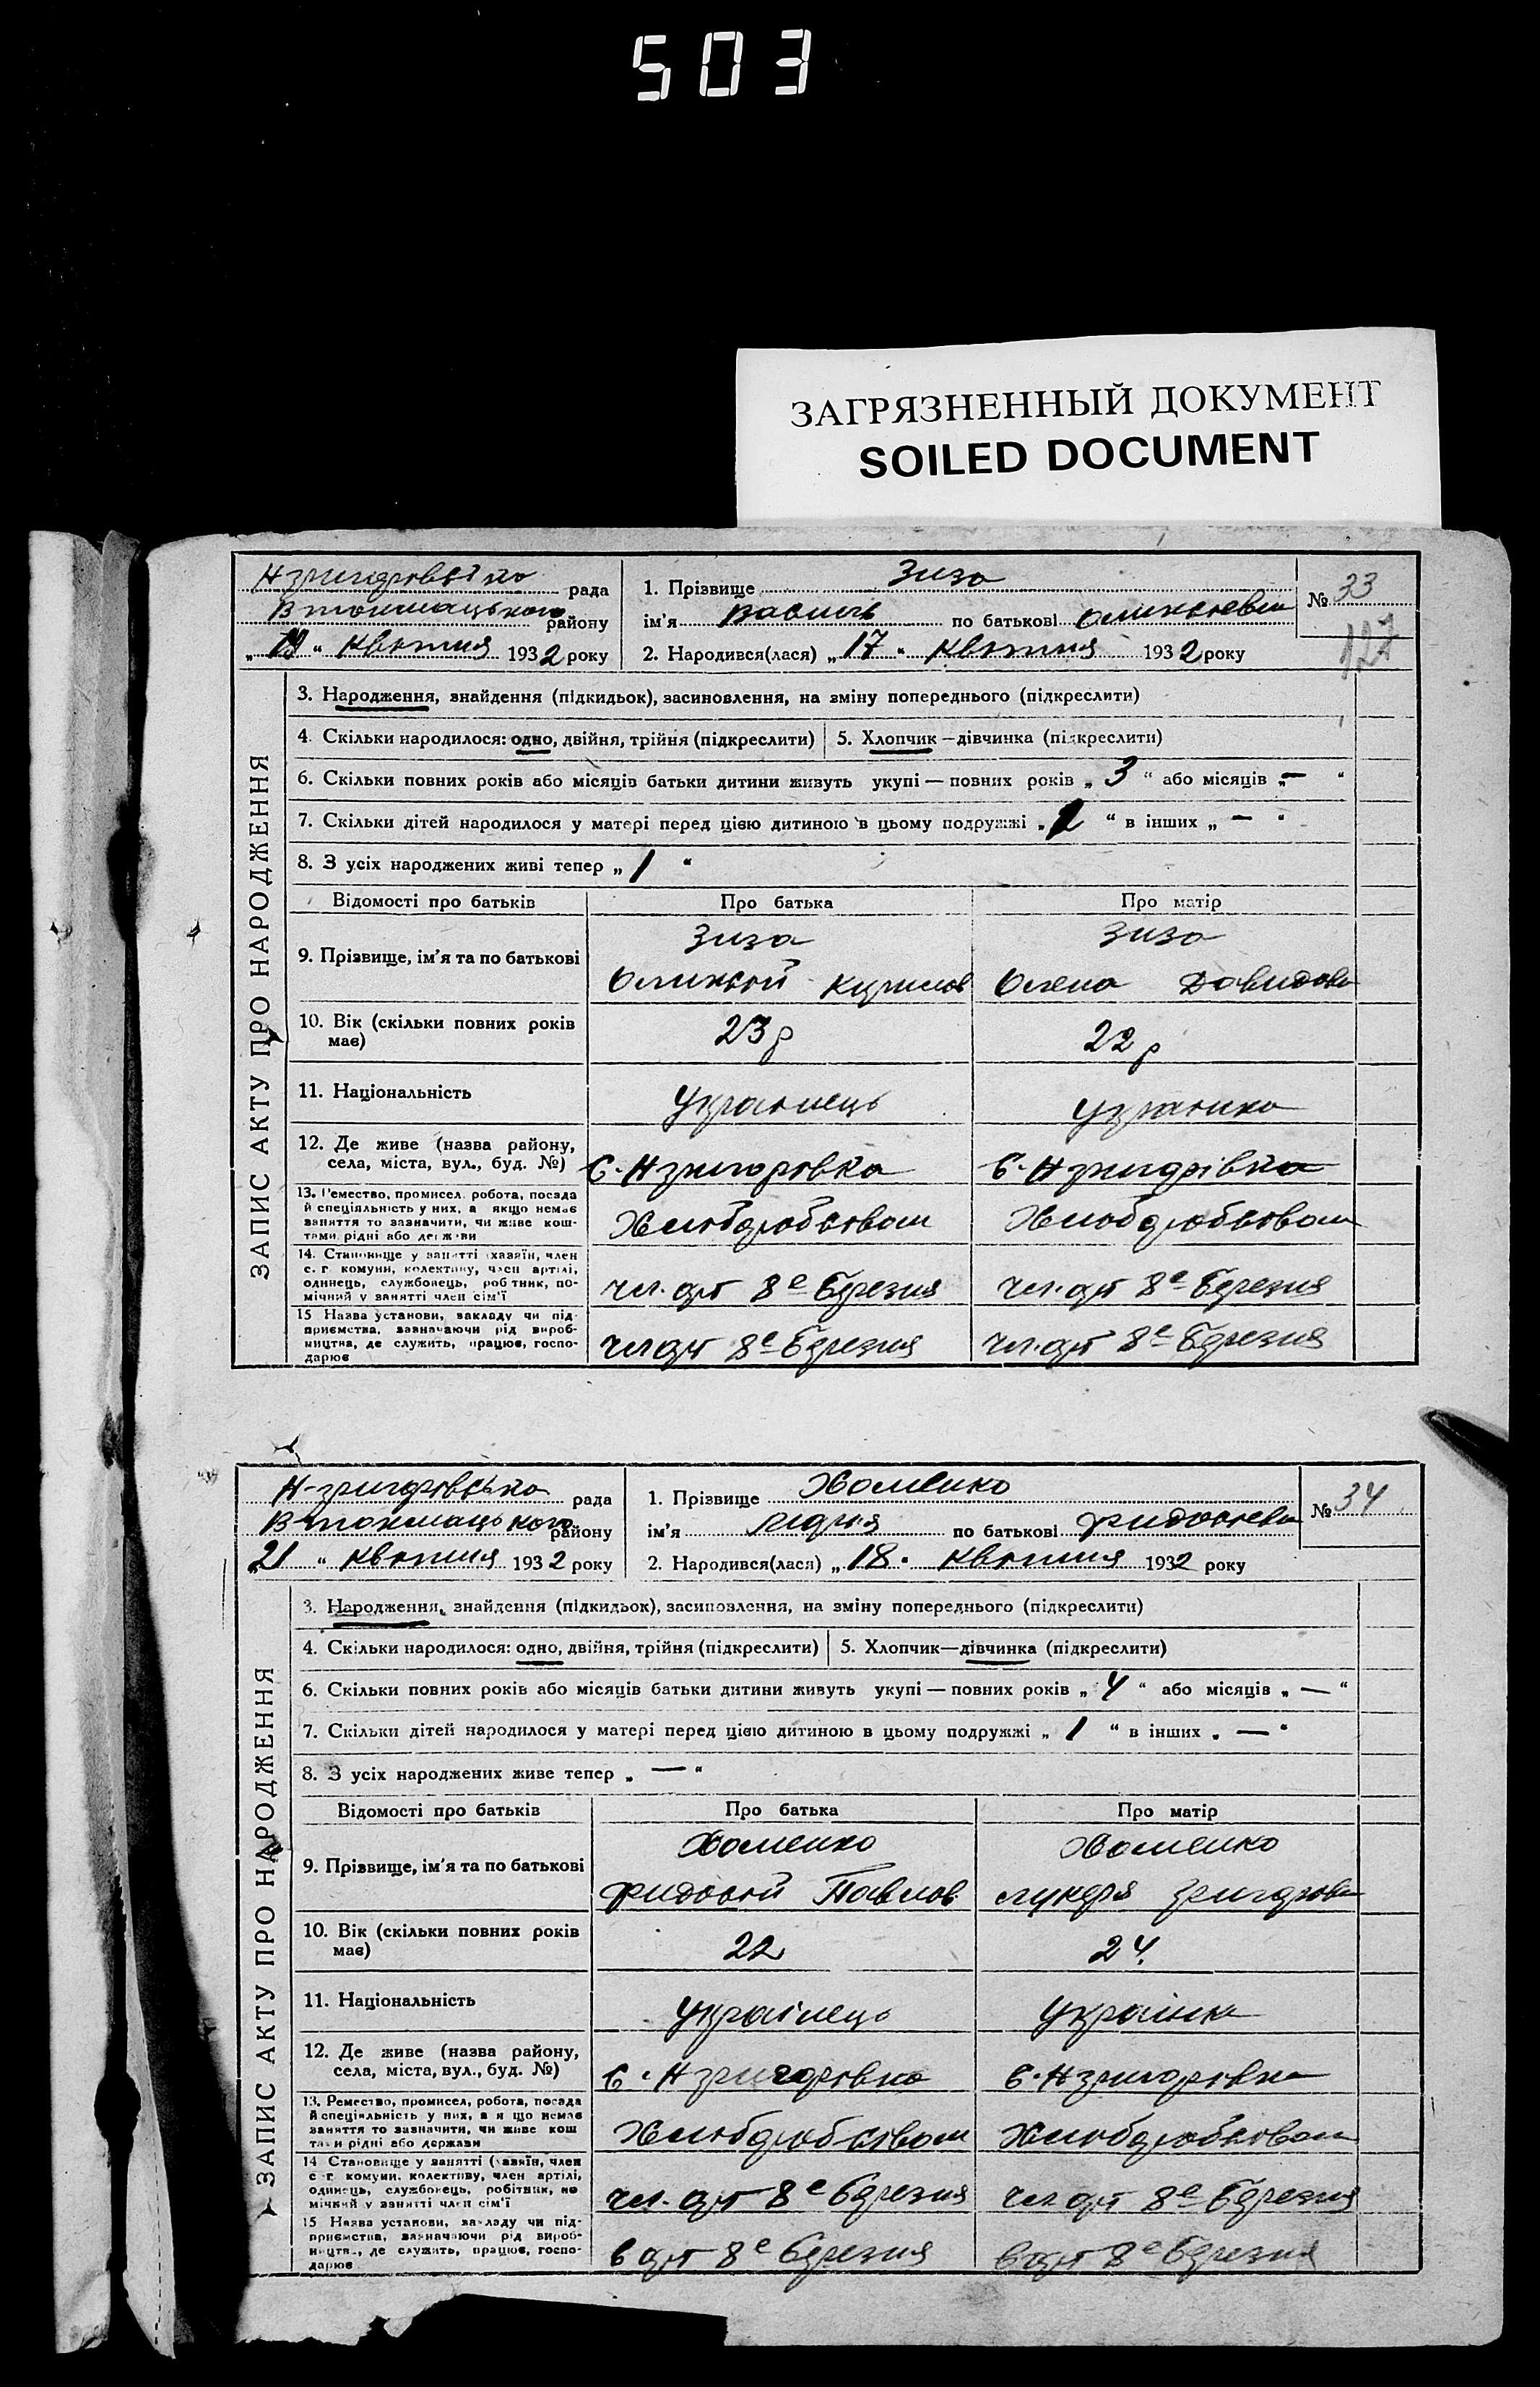 503
ЗАГРЯЗНЕННЫЙ ДОКУМЕНТ
SOILED DOCUMENT
ЗАПИС АКТУ ПРО НАРОДЖЕННЯ
Н григоровська рада
В токмацького району
„ 19 “ квітня 1932 року
1. Прізвище Зиза
ім'я Василь по батькові Оликсієви
2. Народився(лася) „ 17 “ квітня 1932 року
№ 33
127
3. Народження, знайдення (підкидьок), засиновлення, на зміну попереднього (підкреслити)
4. Скільки народилося: одно, двійня, трійня (підкреслити)
5. Хлопчик—дівчинка (підкреслити)
6. Скільки повних років або місяців батьки дитини живуть укупі — повних років „ 3 “ або місяців „ — “
7. Скільки дітей народилося у матері перед цією дитиною в цьому подружжі „ “ в інших „ — “
8. З усіх народжених живі тепер „ 1 “
Відомості про батьків Про батька Про матір
9. Прізвище, ім'я та по батькові
Зиза Зиза
Оликсій Кирилов Олена Давидови
10. Вік (скільки повних років має)
23 р 22 р
11. Національність
Українець Українка
12. Де живе (назва району,
села, міста, вул., буд. №)
с. Н григоровка с. Н григорівка
13. Ремество, промисел, робота, посада
й спеціяльність у них, а якщо немає
заняття то зазначити, чи живе кош-
тами рідні або держави
Хлюборобством Хлюборобством
14. Становище у занятті (хазяїн, член
с. г. комуни, колективу, член артілі,
одинець, службовець, робітник, по-
мічний у занятті член сім'ї
чл. арт 8е березня чл. арт 8е березня
15 Назва установи, закладу чи під-
приємства, зазначаючи рід вироб-
ництва, де служить, працює, госпо-
дарює
чл арт 8е березня чл. арт 8е березня
ЗАПИС АКТУ ПРО НАРОДЖЕННЯ
Н-григоровська рада
В токмацького району
„ 21 “ квітня 1932 року
1. Прізвище Хоменко
ім'я Лідия по батькові Фидосіеви
2. Народився(лася) „ 18 “ квітня 1932 року
№ 34
3. Народження, знайдення (підкидьок), засиновлення, на зміну попереднього (підкреслити)
4. Скільки народилося: одно, двійня, трійня (підкреслити)
5. Хлопчик—дівчинка (підкреслити)
6. Скільки повних років або місяців батьки дитини живуть укупі — повних років „ 4 “ або місяців „ — “
7. Скільки дітей народилося у матері перед цією дитиною в цьому подружжі „ 1 “ в інших „ — “
8. З усіх народжених живе тепер „ — “
Відомості про батьків Про батька Про матір
9. Прізвище, ім'я та по батькові
Хоменко Хоменко
Фидосій Павлов Лукеря Григорови
10. Вік (скільки повних років має)
22 24.
11. Національність
Українець Українка
12. Де живе (назва району,
села, міста, вул., буд. №)
с. Н григоровка с. Н григоровка
13. Ремество, промисел, робота, посада
й спеціяльність у них, а якщо немає
заняття то зазначити, чи живе кош
тами рідні або держави
Хлюборобством Хлюборобством
14 Становище у занятті (хазяїн, член
с г. комуни, колективу, член артілі,
одинець, службовець, робітник, по
мічний у занятті член сім'ї
чл. арт 8е березня чл арт 8е березня
15 Назва установи, закладу чи під-
приємства, зазначаючи рід вироб-
ництв., де служить, працює, госпо-
дарює
в арт 8е березня в арт 8е березня